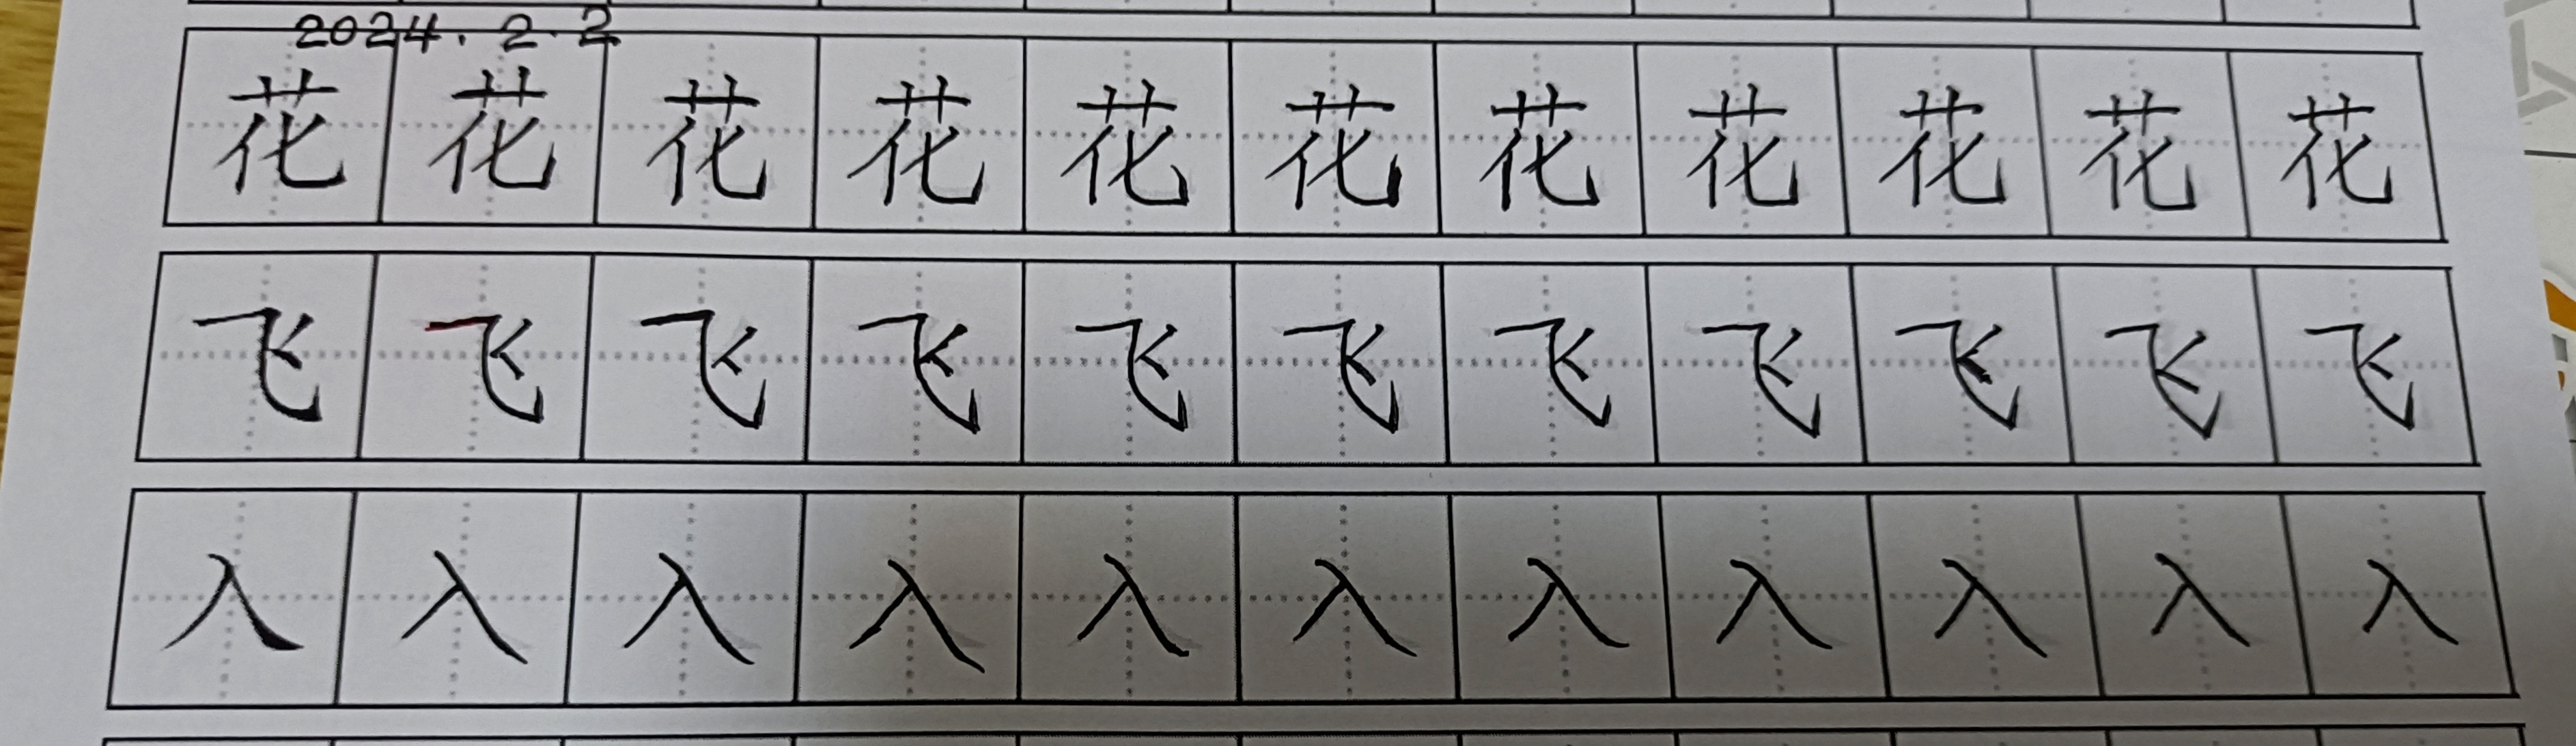 2024.2.2
花花花花花花花花花花花
飞飞飞飞飞飞飞飞飞飞飞
入入入入入入入入入入入